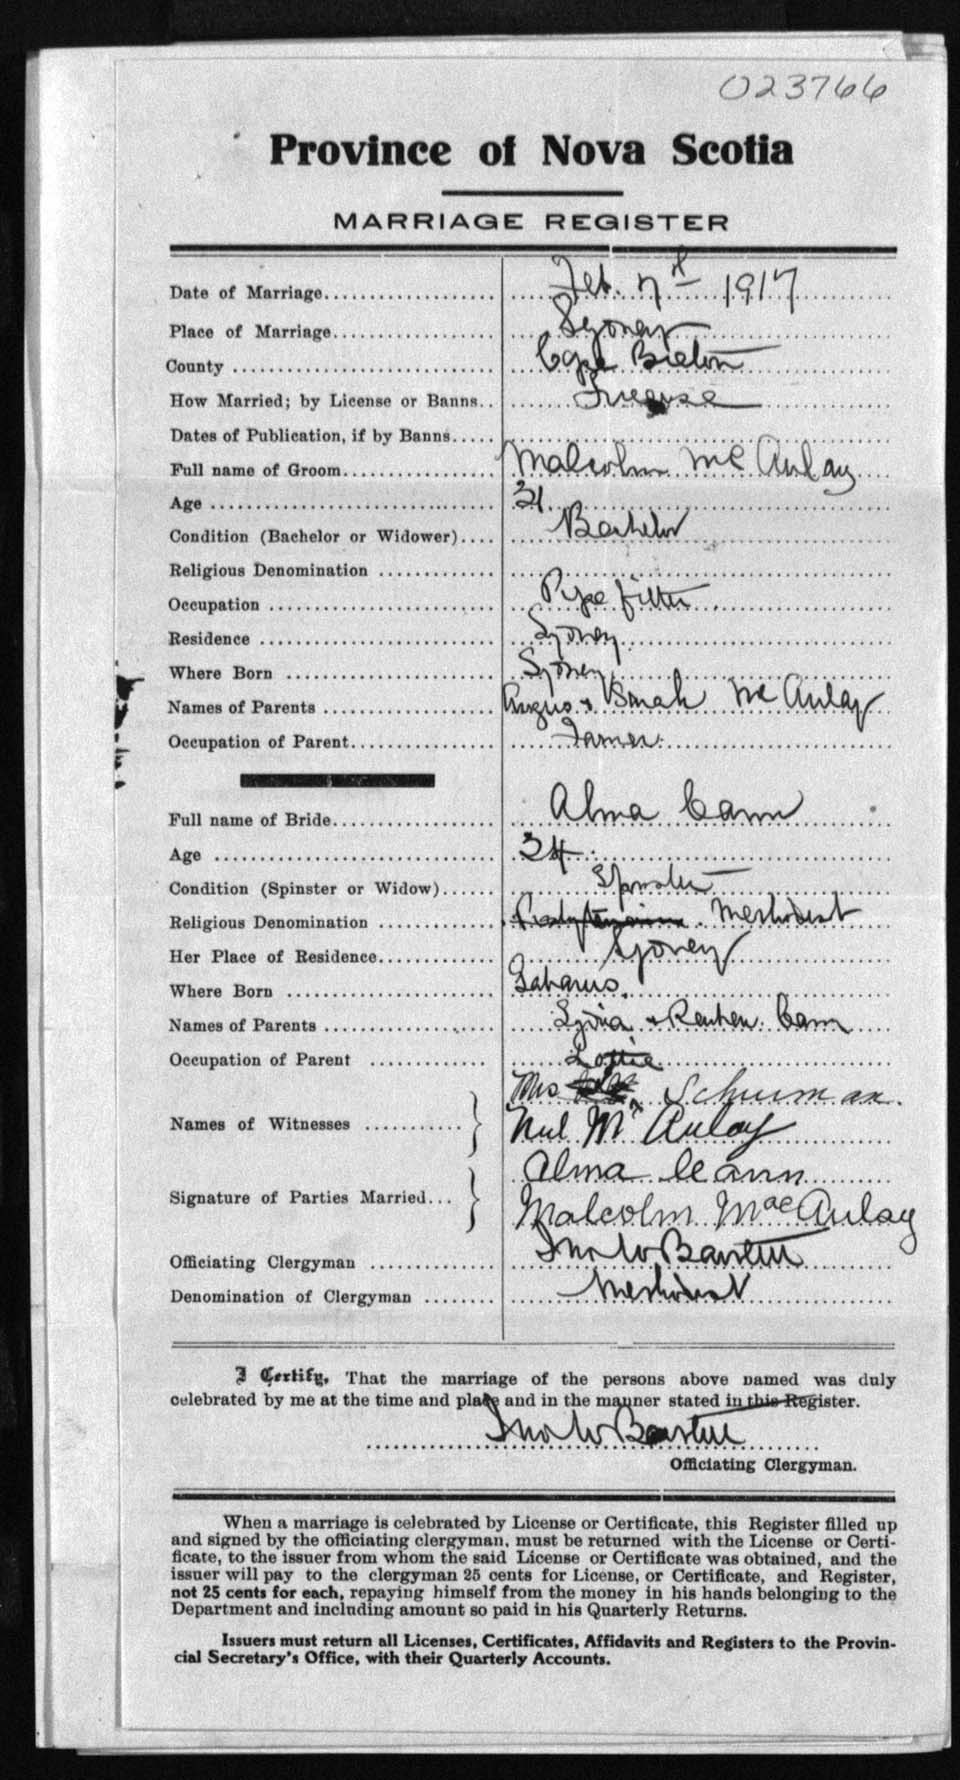 023766
Province of Nova Scotia
MARRIAGE REGISTER
Date of Marriage Feb. 7th 1917
Place of Marriage Sydney
County Cape Breton
How Married; by License or Banns License
Dates of Publication, if by Banns
Full name of Groom Malcolm Mc Aulay
Age
Condition (Bachelor or Widower) Bachelor
Religious Denomination
Occupation Pipe fitter
Residence Sydney
Where Born Sydney
Names of Parents Angus & Sarah Mc Aulay
Occupation of Parent Farmer
Full name of Bride Alma Cann
Age 24
Condition (Spinster or Widow) Spinster
Religious Denomination Presbyterian Methodist
Her Place of Residence Sydney
Where Born Gabarus
Names of Parents Lydia & Reuben Cann
Occupation of Parent
Lottie
Mrs Schurman
Names of Witnesses
Neil Mc Aulay
Alma Cann
Signature of Parties Married
Malcolm MacAulay
Officiating Clergyman Jno W
Denomination of Clergyman Methodist
I Certify, That the marriage of the persons above named was duly
celebrated by me at the time and place and in the manner stated in this Register.
Jno W
Officiating Clergyman.
When a marriage is celebrated by License or Certificate, this Register filled up
and signed by the officiating clergyman, must be returned with the License or Certi-
ficate, to the issuer from whom the said License or Certificate was obtained, and the
issuer will pay to the clergyman 25 cents for License, or Certificate, and Register,
not 25 cents for each, repaying himself from the money in his hands belonging to the
Department and including amount so paid in his Quarterly Returns.
Issuers must return all Licenses, Certificates, Affidavits and Registers to the Provin-
cial Secretary's Office, with their Quarterly Accounts.